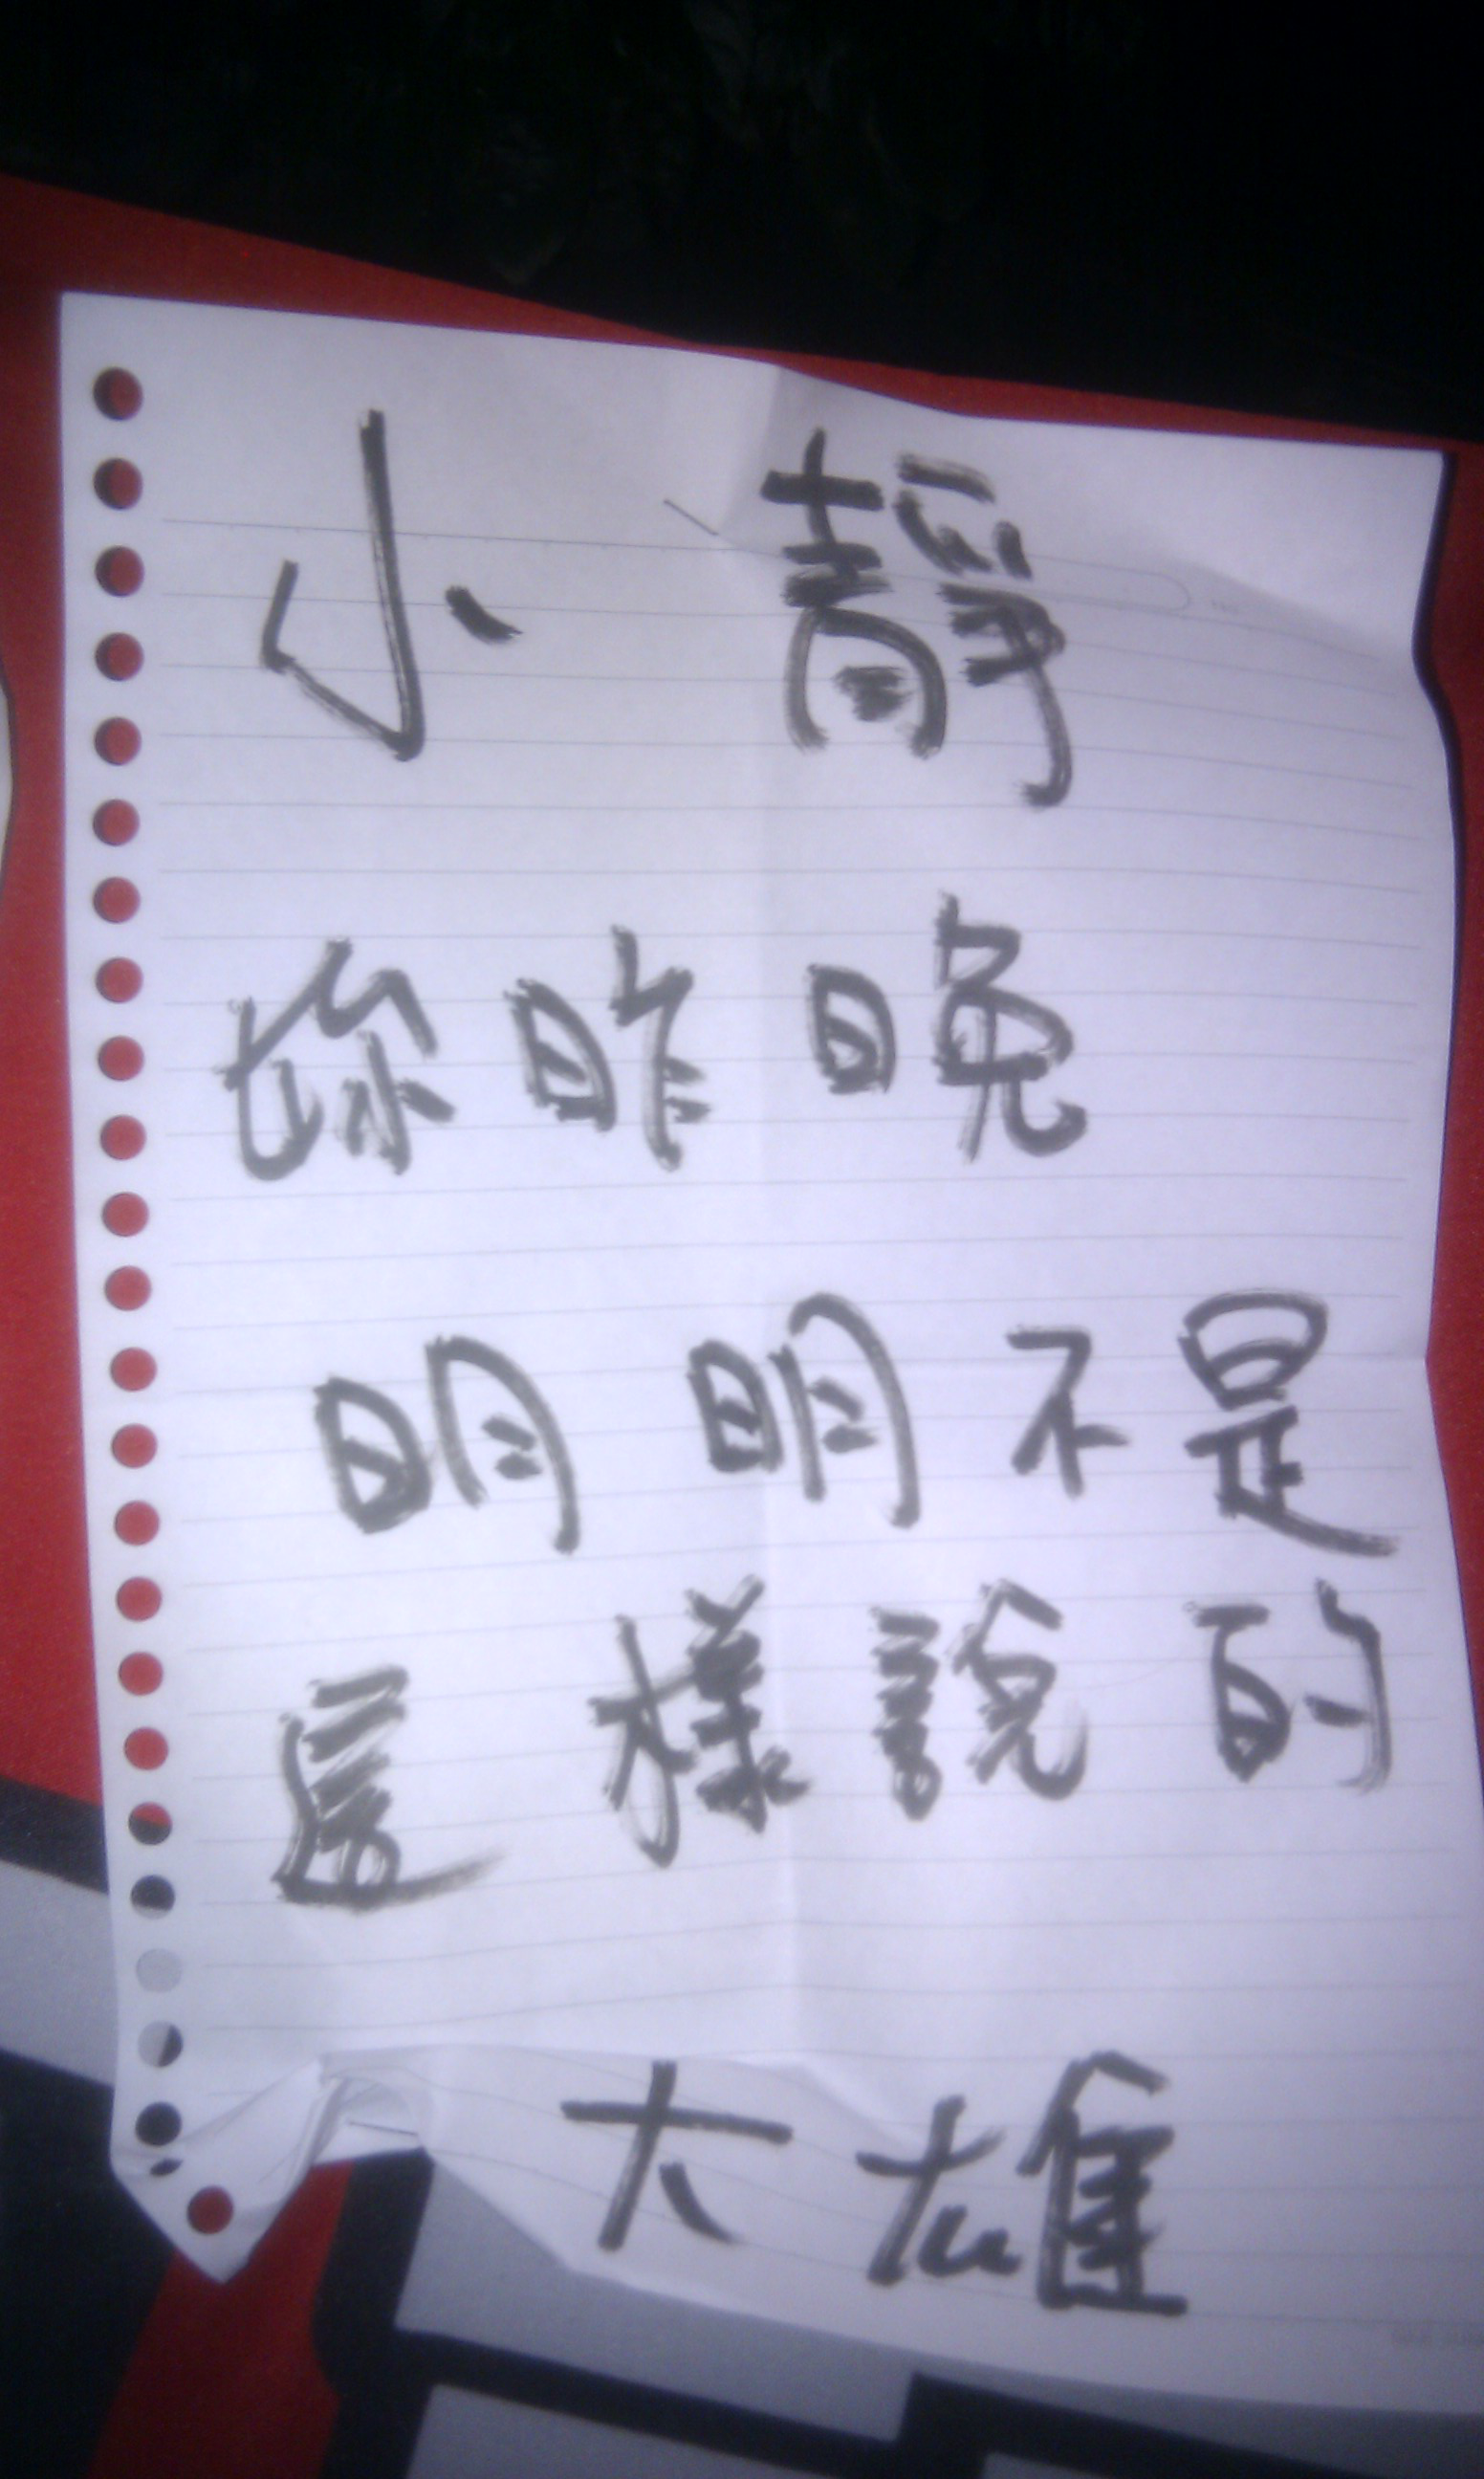 小靜
妳昨晚
明明不是
這樣說的
大雄